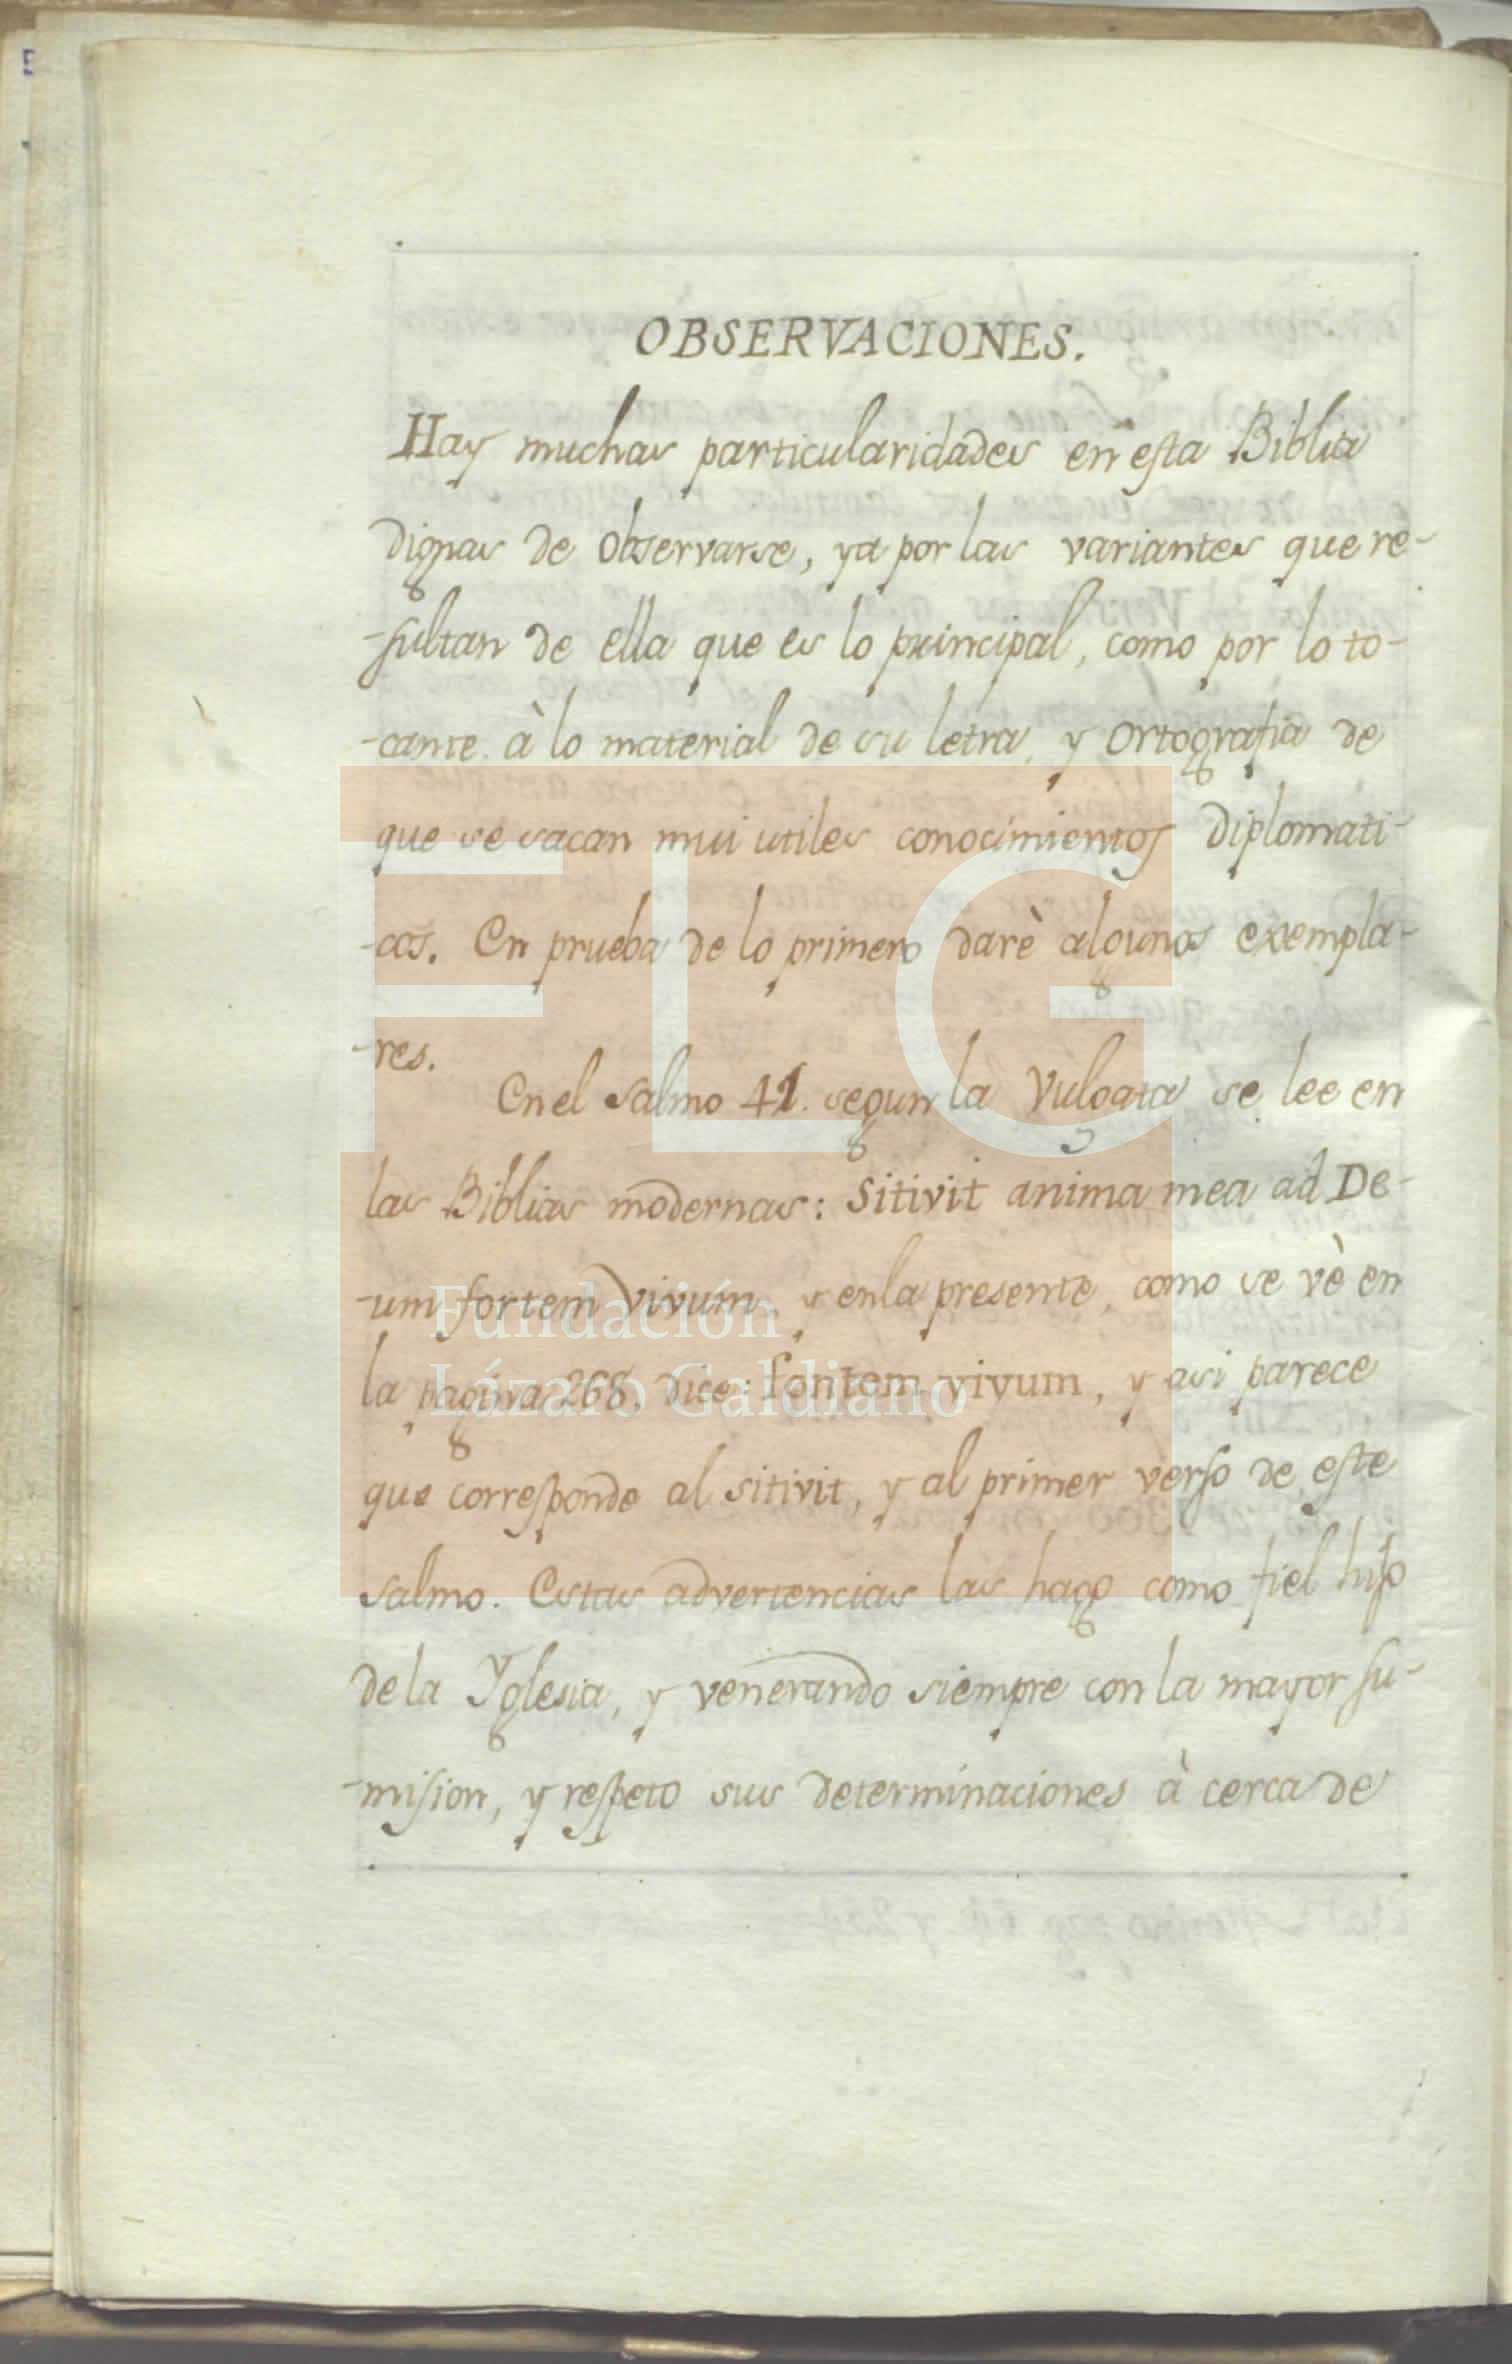 OBSERVACIONES.
Hay muchas particularidades en esta Biblia
dignas de observarse, ya por las variantes que re-
-sultan de ella que es lo principal, como por lo to-
-cante à lo material de su letra, y ortografia de
que se sacan mui utiles conocimientos diplomati-
-cos. En prueba de lo primero darè algunos exempla-
-res.
En el salmo 41. segun la Vulgata se lee en
las Biblias modernas: Sitivit anima mea ad De-
-um fortem vivum, y en la presente, como se vè en
la pagina 268. dice: fontem vivum, y asi parece
que corresponde al sitivit, y al primer verso de este
salmo. Estas advertencias las hago como fiel hijo
de la Yglesia, y venerando siempre con la mayor su-
-mision, y respeto sus determinaciones à cerca de
FLG
Fundación
Lázaro Galdiano